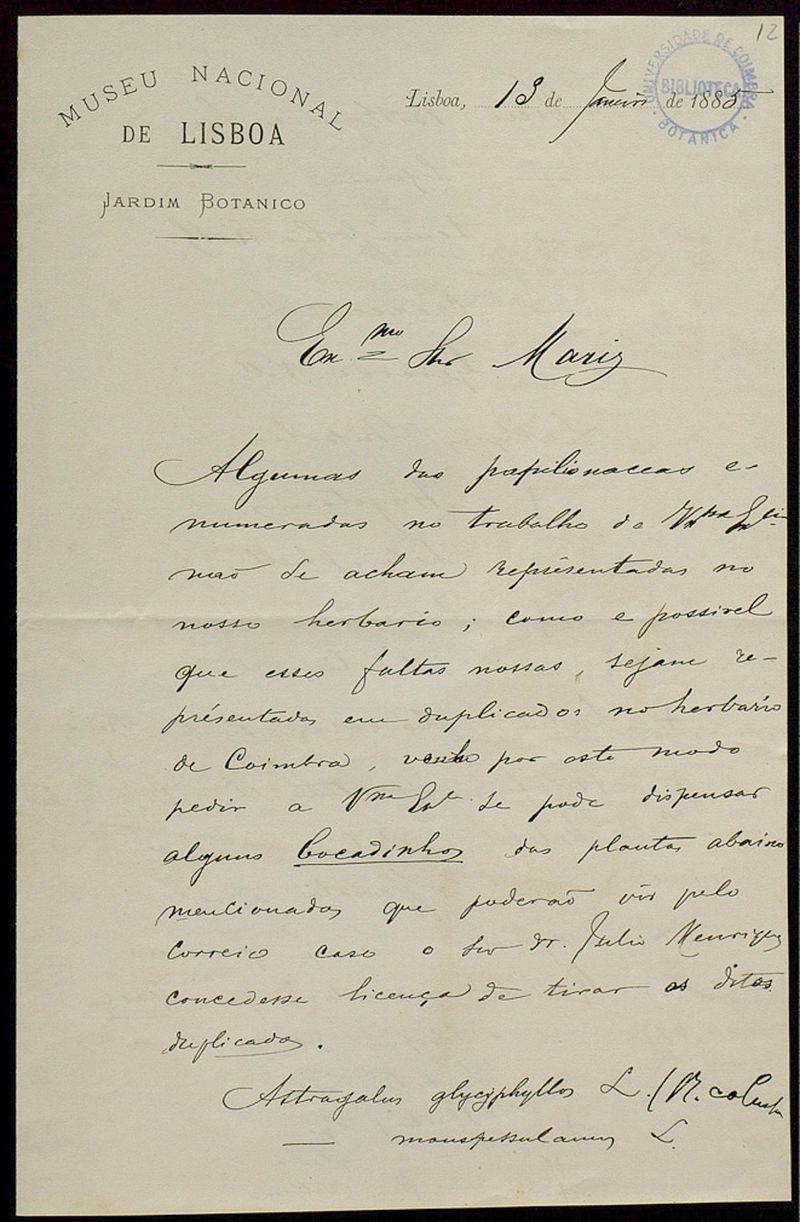 12
MUSEU NACIONAL
DE LISBOA
JARDIM BOTANICO
Lisboa, 13 de Janeiro de 1885
UNIVERSIDADE DE COIMBRA
BIBLIOTECA
BOTANICA
Exmo Snr Mariz
Algumas das papilionaceas e-
numeradas no trabalho de Vª Exª
não se acham representadas no
nosso herbario; como e possivel
que esses faltas nossas, sejam re-
présentadas em duplicados no herbario
de Coimbra, venho por este modo
pedir a Vª Exª se pode dispensar
alguns bocadinhos das plantas abaixo
mencionadas que poderão vir pelo
correio caso o Snr dr. Julio Henriques
concedesse licença de tirar os ditos
duplicados.
Astragalus glycyphyllos L. (R.
— monspessulanus L.